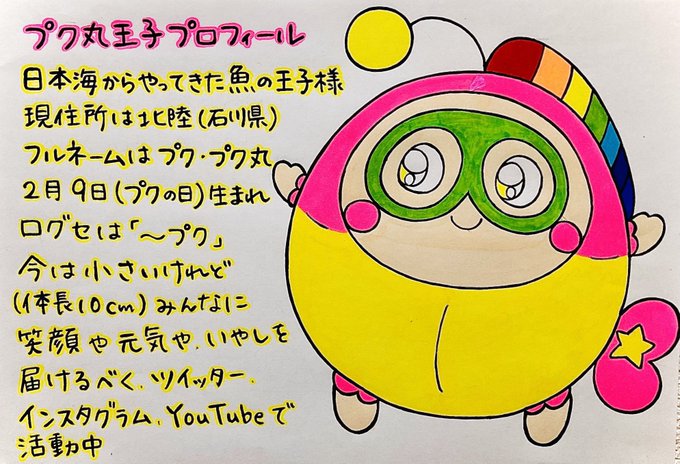 プク丸王子プロフィール
日本海からやってきた魚の王子様
現住所は北陸(石川県)
フルネームはプク・プク丸
2月9日(プクの日)生まれ
口グセは「〜プク」
今は小さいけれど
(体長10cm)みんなに
笑顔や元気や、いやしを
届けるべく、ツイッター、
インスタグラム、YouTubeで
活動中